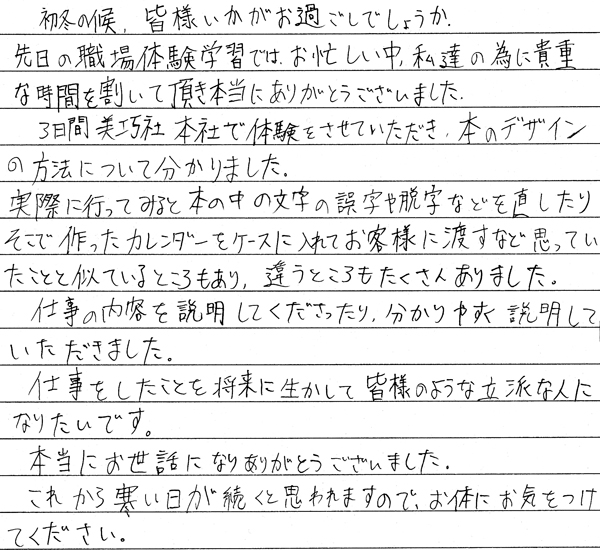 初冬の候、皆様いかがお過ごしでしょうか.
先日の職場体験学習では、お忙しい中、私達の為に貴重
な時間を割いて頂き本当にありがとうございました.
3日間 美巧社 本社で体験をさせていただき、本のデザイン
の方法について分かりました。
実際に行ってみると本の中の文字の誤字や脱字などを直したり
そこで作ったカレンダーをケースに入れてお客様に渡すなど思ってい
たことと似ているところもあり、違うところもたくさんありました。
仕事の内容を説明してくださったり、分かりやすく説明して
いただきました。
仕事をしたことを将来に生かして皆様のような立派な人に
なりたいです。
本当にお世話になりありがとうございました.
これから寒い日が続くと思われますので、お体にお気をつけ
てください。